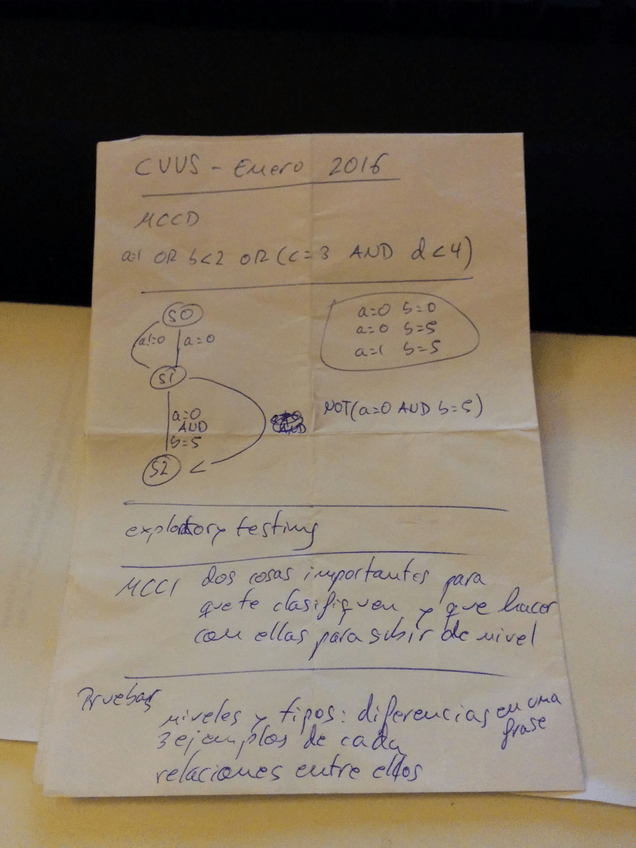 CVVS - Enero 2016
MCCD
a=1 OR b<2 OR (c=3 AND d<4)
S0
a!=0
a=0
a=0 b=0
a=0 b=5
a=1 b=5
S1
a=0
AND
b=5
NOT(a=0 AND b=5)
S2
exploratory testing
MCCI dos cosas importantes para
que te clasifiquen y que hacer
con ellas para subir de nivel
Pruebas
niveles y tipos: diferencias en una
frase
3 ejemplos de cada
relaciones entre ellos